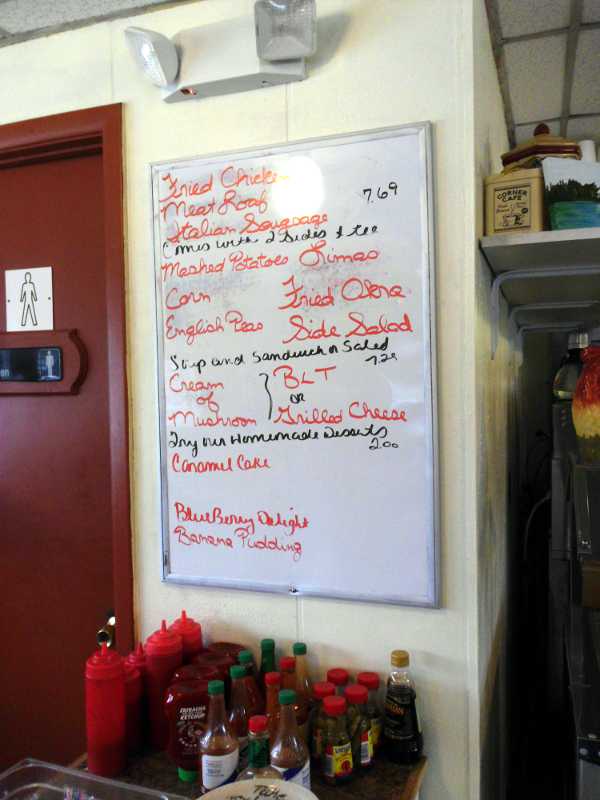 Fried Chicken
Meat Roaf 7.69
Italian Sougsage
Comes with 2 Sides & tea
Mashed Potatoes Limas
Corn Fried Okra
English Peas Side Salad
Soup and Sandwich or Salad
7.29
Cream BLT
of or
Mushroom Grilled Cheese
Try our Homemade Desserts
2.00
Caramel Cake
BlueBerry Delight
Banana Pudding
CORNER
CAFE
SRIRACHA
KETCHUP